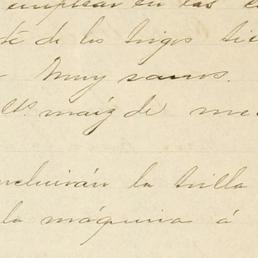 empesar en las
de los trigos
Muy sanos.
maíz de me
cluirán la trilla
la máquina á